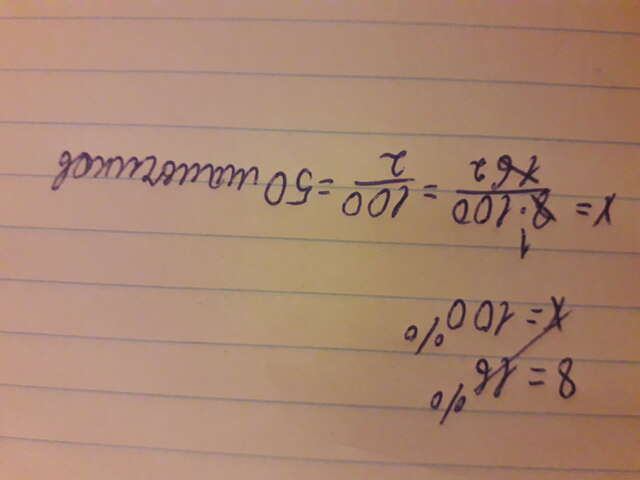 8 = 16%
x = 100%
x = 8·100/16 = 100/2 = 50 мальчиков